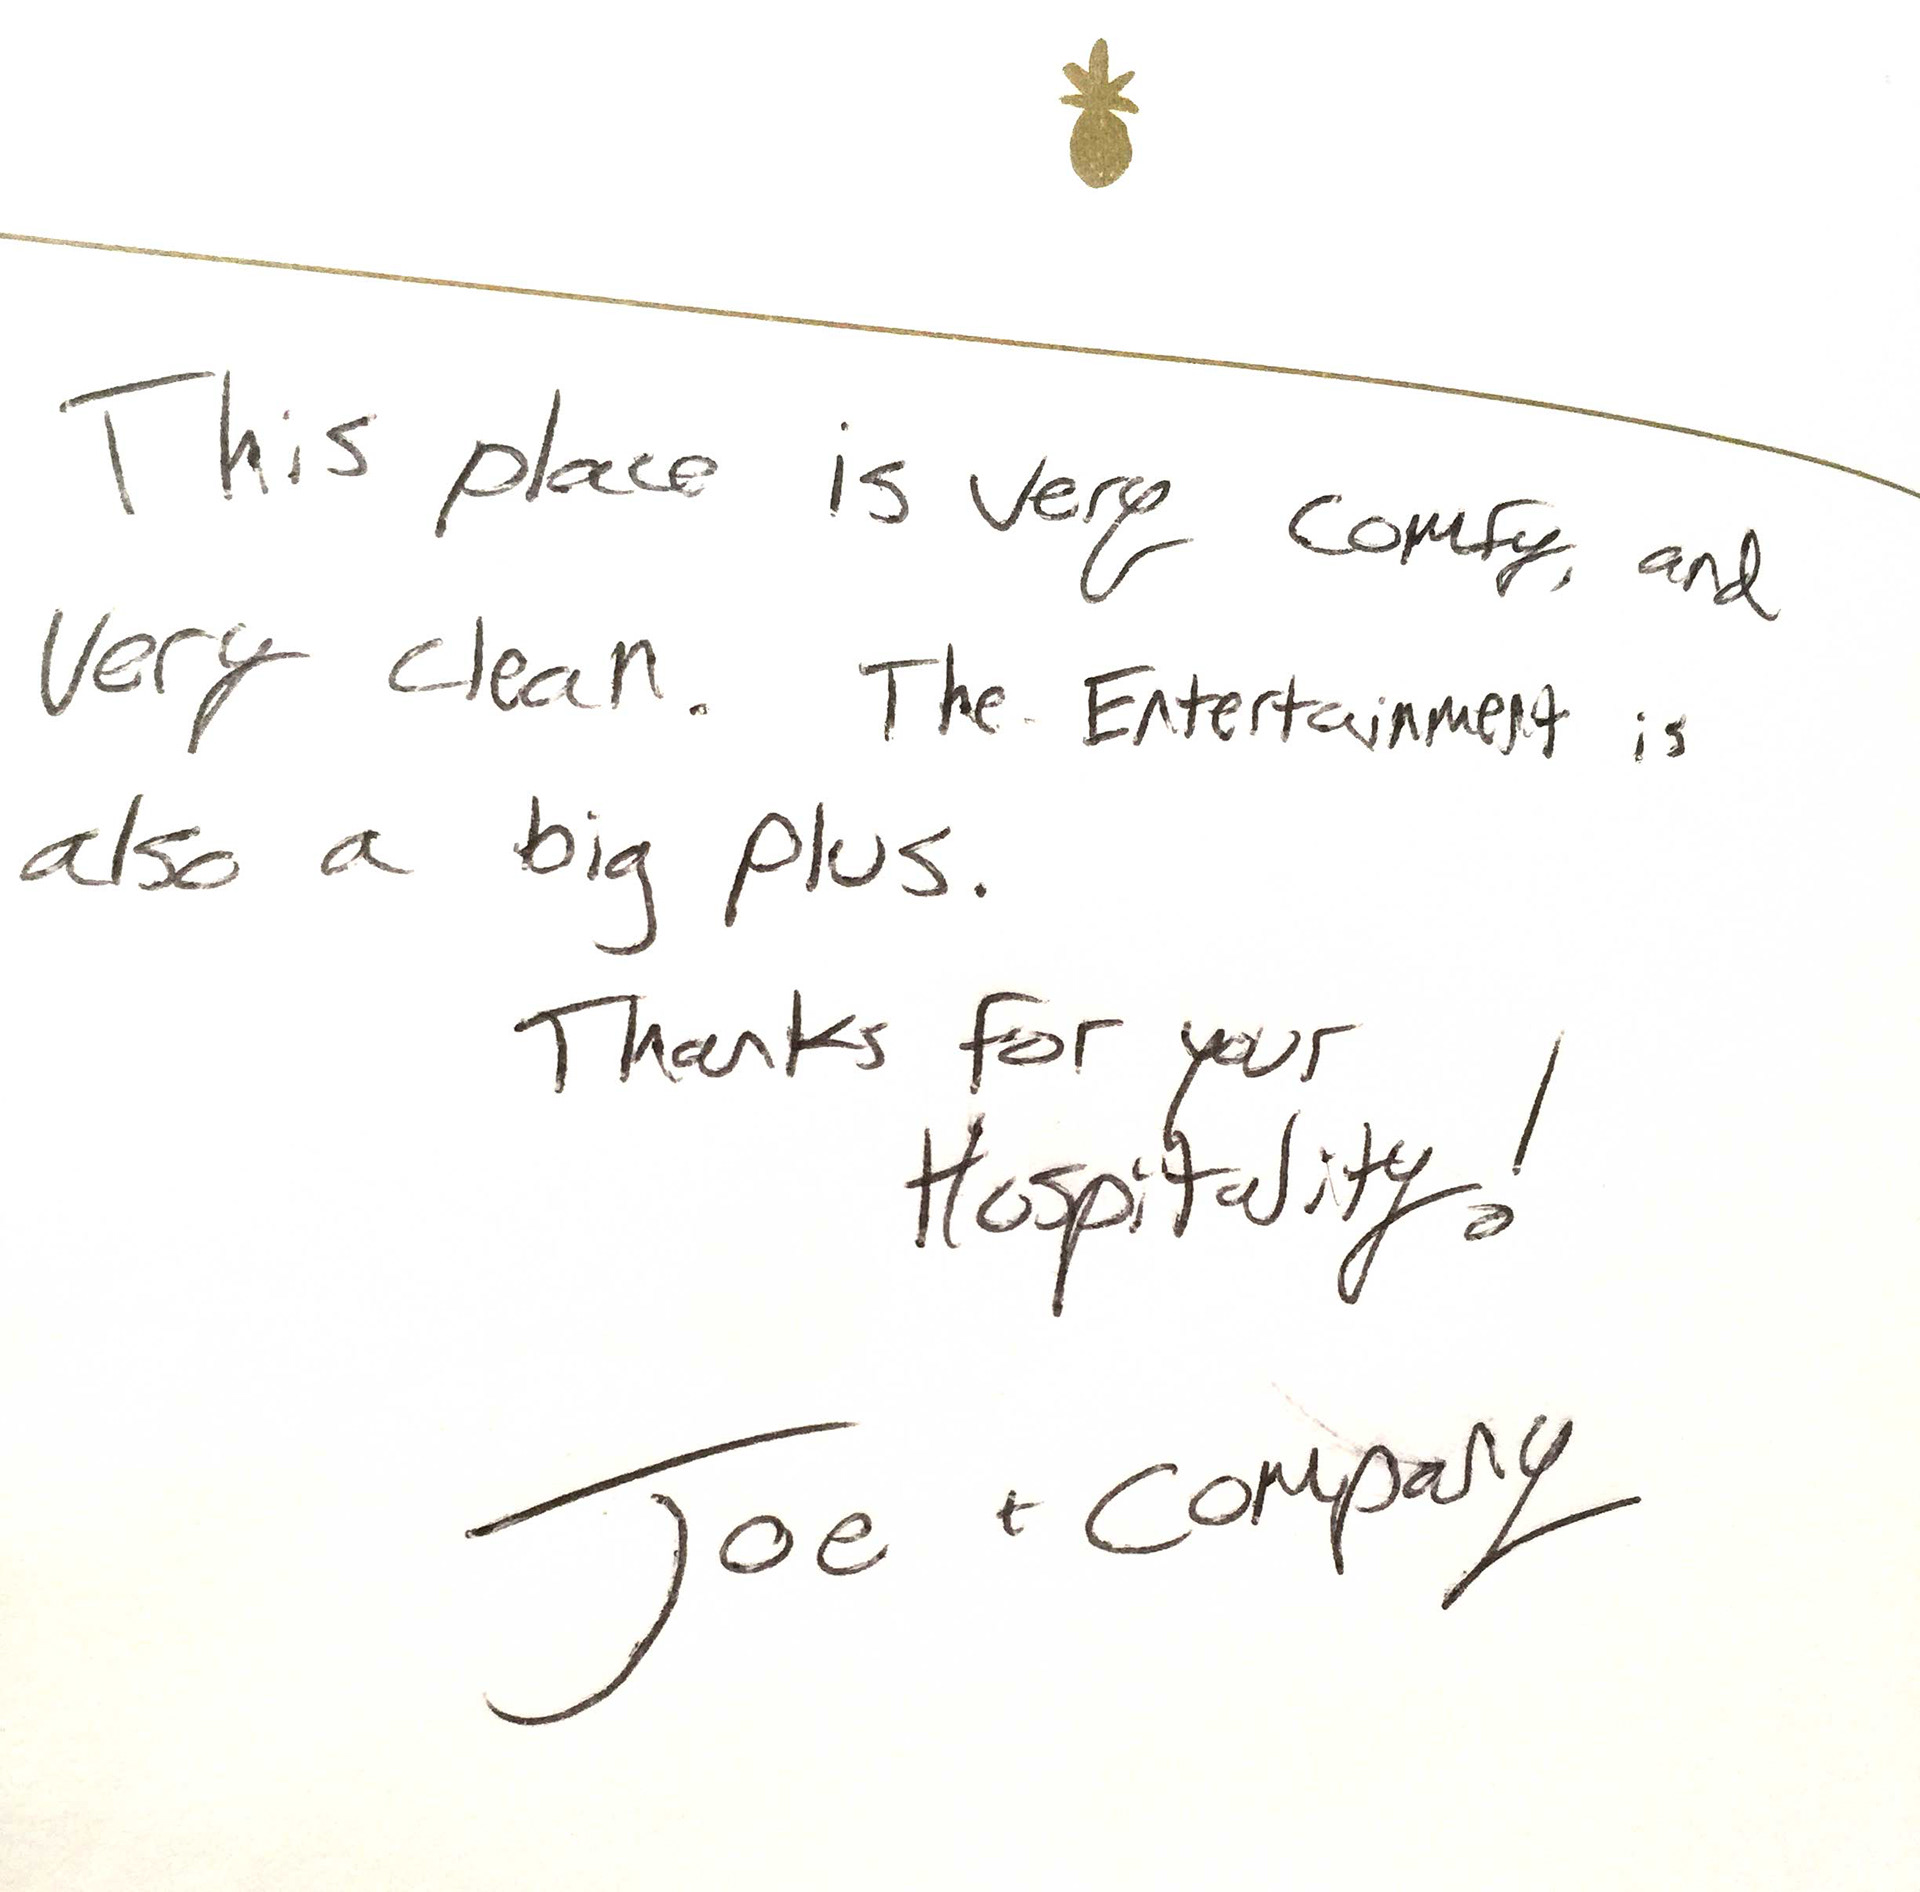 This place is very comfy, and
very clean. The Entertainment is
also a big plus.
Thanks for your
Hospitality!
Joe + Company